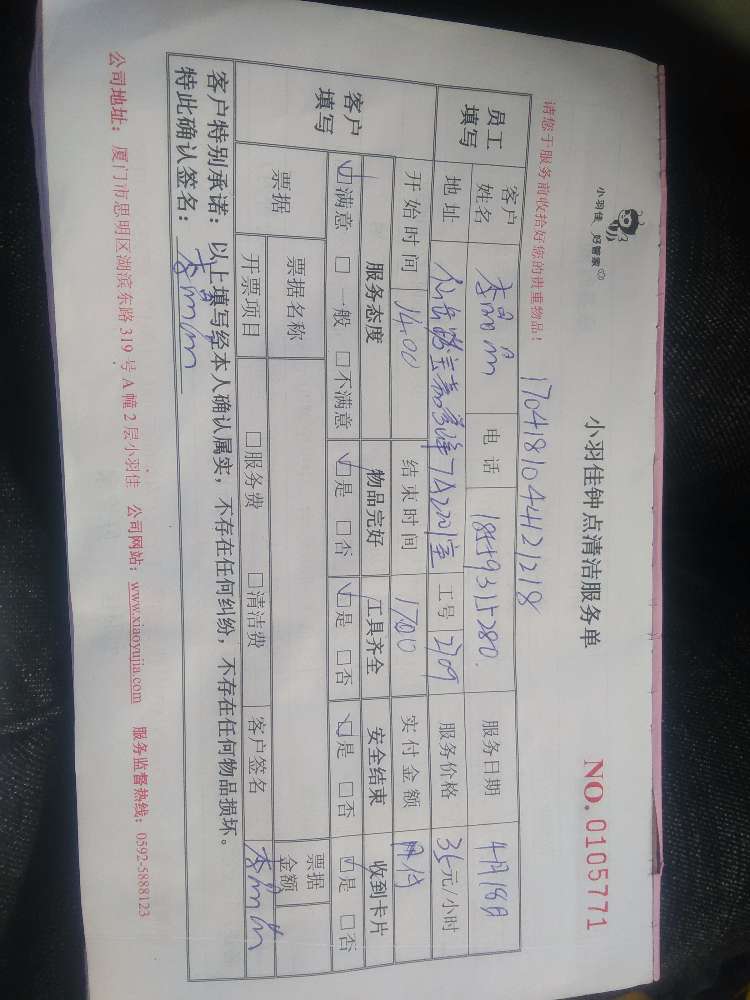 小羽佳 好管家
小羽佳钟点清洁服务单
NO.0105771
请您于服务前收拾好您的贵重物品！
1704181044121218
员工填写 客户姓名 电话 18449315280 服务日期 4月18日
地址 工号 2709 服务价格 35元/小时
客户填写 开始时间 14:00 结束时间 17:00 实付金额 月付
服务态度 物品完好 工具齐全 安全结束 收到卡片
☑满意 □一般 □不满意 ☑是 □否 ☑是 □否 ☑是 □否 ☑是 □否
票据 票据名称 票据金额
开票项目 □服务费 □清洁费 客户签名
客户特别承诺：以上填写经本人确认属实，不存在任何纠纷，不存在任何物品损坏。
特此确认签名：
公司地址：厦门市思明区湖滨东路319号A幢2层小羽佳 公司网站：www.xiaoyujia.com 服务监督热线：0592-5888123